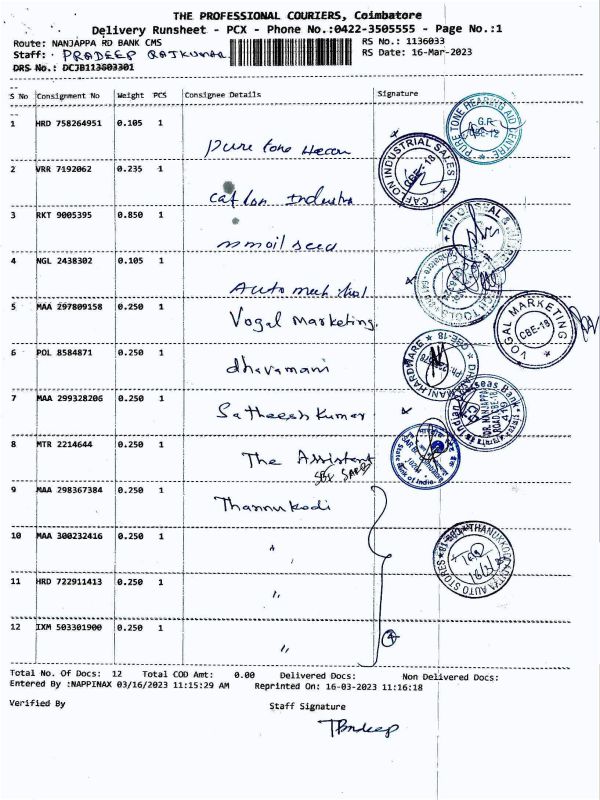 THE PROFESSIONAL COURIERS, Coimbatore
Delivery Runsheet - PCX - Phone No.:0422-3505555 - Page No.:1
Route: NANJAPPA RD BANK CMS RS No.: 1136033
Staff: PRADEEP RAJKUMAR RS Date: 16-Mar-2023
DRS No.: DCJB113603301
S No Consignment No Weight PCS Consignee Details Signature
1 HRD 758264951 0.105 1
Pure tone Hearn
PURE TONE HEARING AID CENTRE G.R. CBE-12
2 VRR 7192062 0.235 1
Caf lon Industri
CAFLON INDUSTRIAL SALES CBE-18
3 RKT 9005395 0.850 1
mmoil seed
4 NGL 2438302 0.105 1
Auto
5 MAA 297809158 0.250 1
Vogal Marketing.
VOGAL MARKETING CBE-18
6 POL 8584871 0.250 1
dhavamani
HARDWARE CBE-18
7 MAA 299328206 0.250 1
Satheesh Kumar
Overseas Bank NANJAPPA ROAD CBE-18
8 MTR 2214644 0.250 1
The Assistent
SBI
State Bank of India.
9 MAA 298367384 0.250 1
Thannukodi
10 MAA 300232416 0.250 1
"
AUTO STORES CBE-18
11 HRD 722911413 0.250 1
"
12 IXM 503301900 0.250 1
"
4
Total No. Of Docs: 12 Total COD Amt: 0.00 Delivered Docs: Non Delivered Docs:
Entered By :NAPPINAX 03/16/2023 11:15:29 AM Reprinted On: 16-03-2023 11:16:18
Verified By Staff Signature